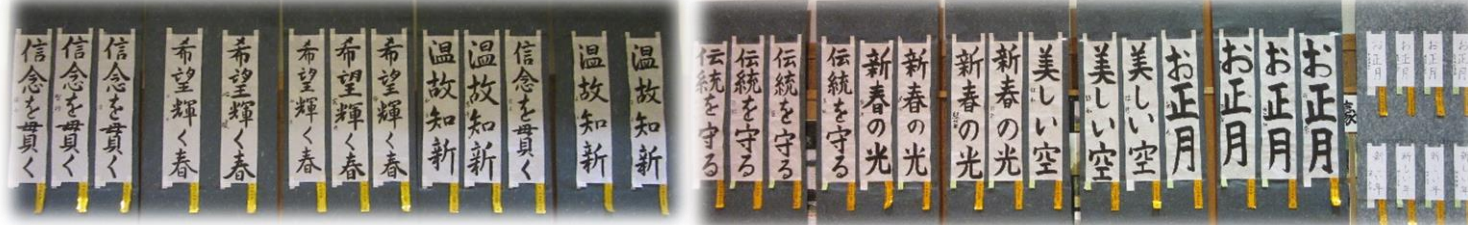 信念を貫く
信念を貫く
信念を貫く
希望輝く春
希望輝く春
希望輝く春
希望輝く春
希望輝く春
温故知新
温故知新
信念を貫く
温故知新
温故知新
伝統を守る
伝統を守る
伝統を守る
伝統を守る
新春の光
新春の光
新春の光
新春の光
美しい空
美しい空
美しい空
お正月
お正月
お正月
お正月
お正月
お正月
お正月